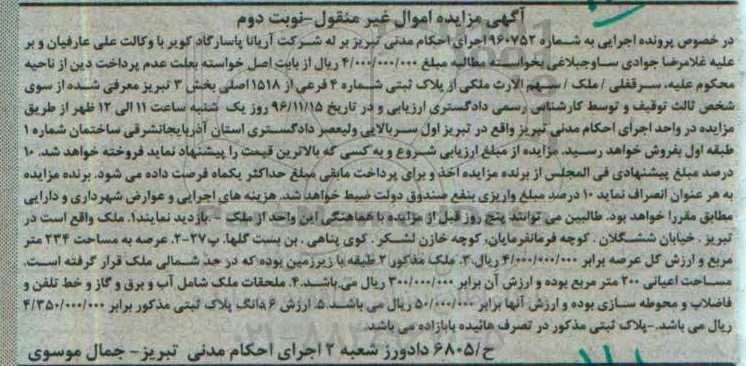 آگهی مزایده اموال غیر منقول-نوبت دوم
در خصوص پرونده اجرایی به شماره ۹۶۰۷۵۲اجرای احکام مدنی تبریز بر له شرکت آریانا پاسارگاد کویر با وکالت علی عارفیان و بر
علیه غلامرضا جوادی ساوجبلاغی بخواسته مطالبه مبلغ ۴/۰۰۰/۰۰۰/۰۰۰ ریال از بابت اصل خواسته بعلت عدم پرداخت دین از ناحیه
محکوم علیه، سرقفلی / ملک / سهم الارث ملکی از پلاک ثبتی شماره ۴ فرعی از ۱۵۱۸اصلی بخش ۳ تبریز معرفی شده از سوی
شخص ثالث توقیف و توسط کارشناس رسمی دادگستری ارزیابی و در تاریخ ۹۶/۱۱/۱۵ روز یک شنبه ساعت ۱۱ الی ۱۲ ظهر از طریق
مزایده در واحد اجرای احکام مدنی تبریز واقع در تبریز اول سربالایی ولیعصر دادگستری استان آذربایجانشرقی ساختمان شماره ۱
طبقه اول بفروش خواهد رسید. مزایده از مبلغ ارزیابی شروع و به کسی که بالاترین قیمت را پیشنهاد نماید فروخته خواهد شد. ۱۰
درصد مبلغ پیشنهادی فی المجلس از برنده مزایده اخذ و برای پرداخت مابقی مبلغ حداکثر یکماه فرصت داده می شود. برنده مزایده
به هر عنوان انصراف نماید ۱۰ درصد مبلغ واریزی بنفع صندوق دولت ضبط خواهد شد. هزینه های اجرایی و عوارض شهرداری و دارایی
مطابق مقررا خواهد بود. طالبین می توانند پنج روز قبل از مزایده با هماهنگی این واحد از ملک بازدید نمایند۱. ملک واقع است در
تبریز . خیابان ششگلان . کوچه فرمانفرمایان، کوچه خازن لشکر . کوی پناهی . بن بست گلها. پ۲۷-۲. عرصه به مساحت ۲۳۴ متر
مربع و ارزش کل عرصه برابر ۴/۰۰۰/۰۰۰/۰۰۰ ریال.۳. ملک مذکور ۲ طبقه با زیرزمین بوده که در حد شمالی ملک قرار گرفته است.
مساحت اعیانی ۲۰۰ متر مربع بوده و ارزش آن برابر ۳۰۰/۰۰۰/۰۰۰ ریال می باشد.۴. ملحقات ملک شامل آب و برق و گاز و خط تلفن و
فاضلاب و محوطه سازی بوده و ارزش آنها برابر ۵۰/۰۰۰/۰۰۰ ریال می باشد.۵. ارزش ۶دانگ پلاک ثبتی مذکور برابر ۴/۳۵۰/۰۰۰/۰۰۰
ریال می باشد.-پلاک ثبتی مذکور در تصرف هائیده بابازاده می باشد.
ح/۶۸۰۵ دادورز شعبه ۲ اجرای احکام مدنی تبریز- جمال موسوی